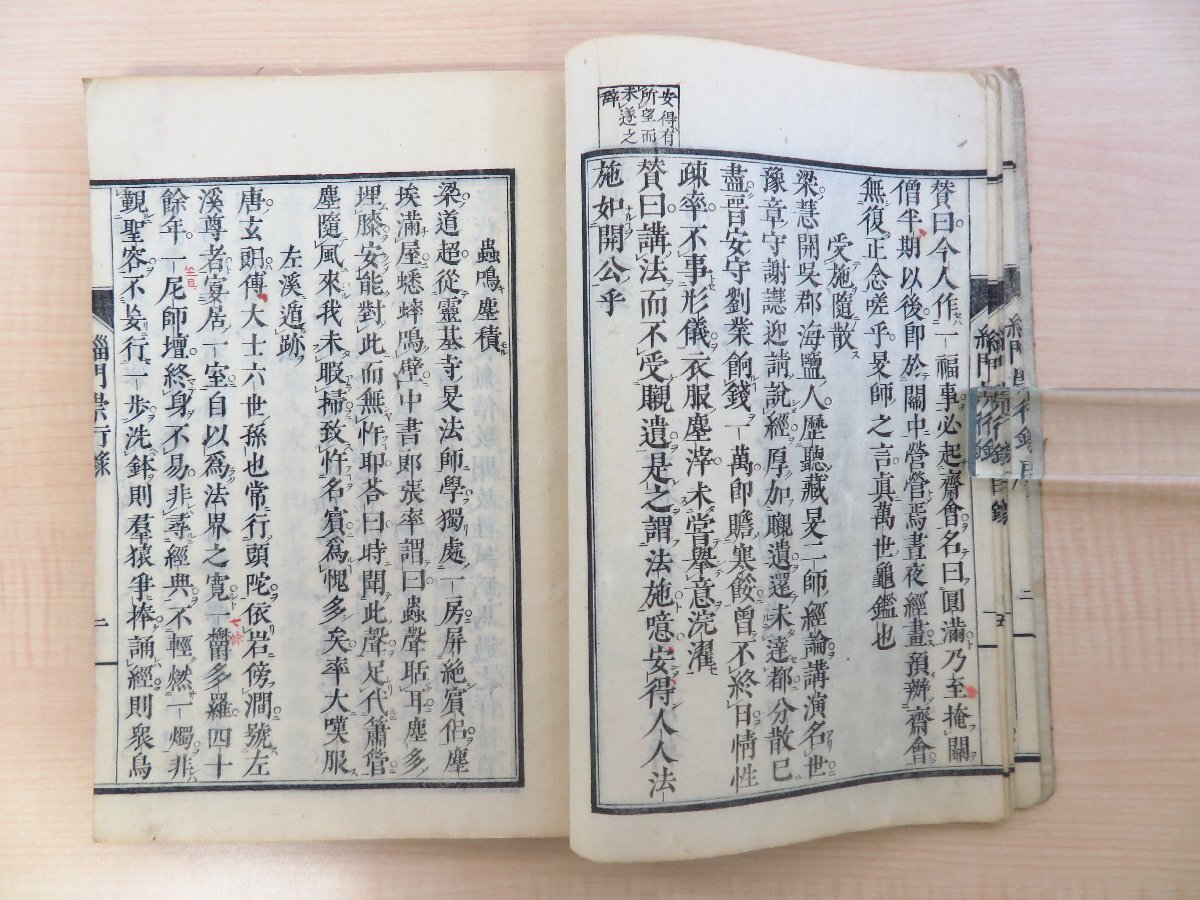 安得有
所望而
未遂之
辭
贊曰今人作一福事必起齋會名曰圓滿乃至掩關
僧半期以後即於關中營營焉晝夜經畫預辦齋會
無復正念嗟乎旻師之言真萬世龜鑑也
受施隨散
梁慧開吳郡海鹽人歷聽藏旻二師經論講演名世
豫章守謝譓迎請說經厚加䞋遺還未達都分散已
盡晉安守劉業餉錢一萬即贍寒餒曾不終日情性
疎率不事形儀衣服塵滓未嘗舉意浣濯
贊曰講法而不受䞋遺是之謂法施噫安得人人法
施如開公乎
蟲鳴塵積
梁道超從靈基寺旻法師學獨處一房屏絕賓侶塵
埃滿屋蟋蟀鳴壁中書郎張率謂曰蟲聲聒耳塵多
埋膝安能對此而無忤耶答曰時聞此聲足代簫管
塵隨風來我未暇掃致忤名賓爲愧多矣率大嘆服
左溪遁跡
唐玄朗傅大士六世孫也常行頭陀依岩傍澗號左
溪尊者宴居一室自以爲法界之寬一欝多羅四十
七條
餘年一尼師壇終身不易非尋經典不輕燃一燭非
坐具
覲聖容不妄行一步洗鉢則羣猿爭捧誦經則衆鳥
緇門崇行錄
二